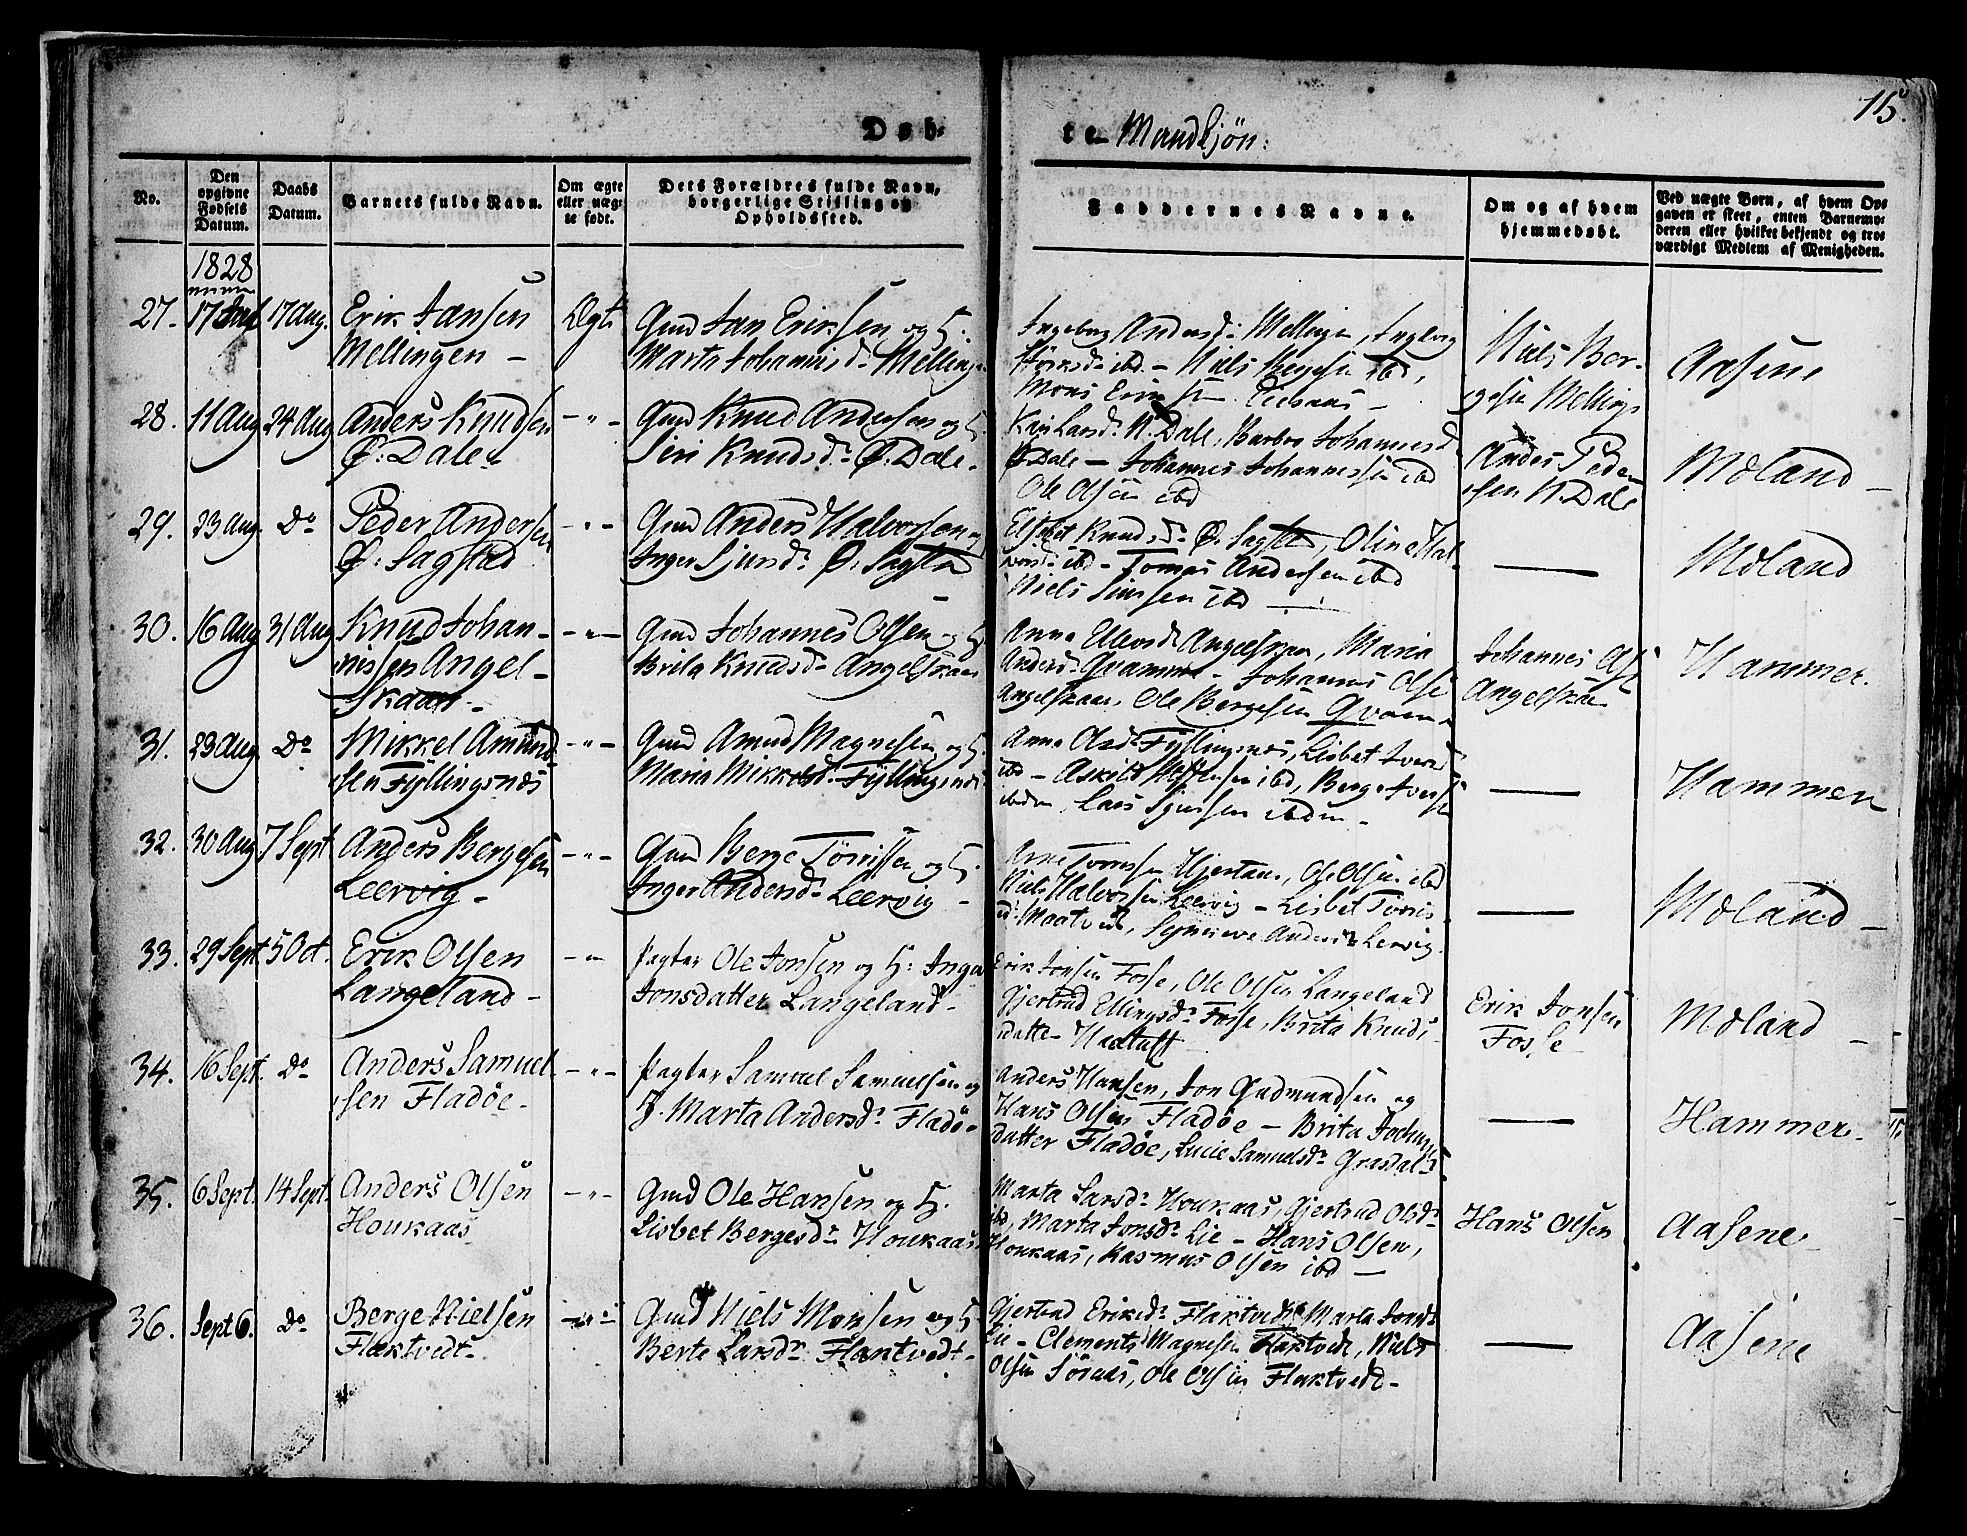 15.
Døb-
te Mandkjøn:
No.
Den opgivne Fødsels Datum.
Daabs Datum.
Barnets fulde Navn.
Om ægte eller uægte født.
Dets Forældres fulde Navn, borgerlige Stilling og Opholdssted.
Faddernes Navne.
Om og af hvem hjemmedøbt.
Ved uægte Børn, af hvem Opgaven er skeet, enten Barnemoderen eller hvilket bekjendt og troværdigt Medlem af Menigheden.
1828
27. 17 Aug. Erik Jansen Ægte Gmd Jan Eriksen og H.
Mellingen - Marta Johannisd. Mellingen
Ingeborg Andersd. Mellingen, Ingborg
ibd - Niels Bergesen ibd,
Mons
Niels Ber-
gesen Mellingen
Aasene
28. 11 Aug 24 Aug Anders Knudsen -"- Gmd Knud Andersen og H.
Ø. Dale Siri Knudsd. Ø. Dale.
Kari Larsd. N. Dale, Barbro Johannesd.
Ø Dale - Johannes Johannessen ibd
Ole Olsen ibd
Anders Peder-
sen N. Dale
Moland -
29. 23 Aug. Do Peder Andersen -"- Gmd Anders Halvorsen og
Ø. Sagstad Inger Sjursd. Ø. Sagsta
Elsebet Knudsd. Ø. Sagsta, Oline Hal-
vorsd. ibd - Tomas Andersen ibd
Niels Simsen ibd -
Moland
30. 16 Aug 31 Aug Knud Johan- -"- Gmd Johannes Olsen og H
nissen Angel- Brita Knudsd. Angelskaar
skaar -
Anna Ellevsd. Angelskaar, Maria
Andersd. Qvamme - Johannes Olse
Angelskaar, Ole Bergesen Qvam
Johannes Olse
Angelskaa
Hammer.
31. 23 Aug. Do Mikkel Amund- -"- Gmd Amund Magnesen og H.
sen Fyllingsnæs Maria Mikkelsd. Fyllingsnæs
Anna Olsd. Fyllingsnæs, Lisbet Iversd
ibd - Askild ibd, Berge Iversen
ibdm, Lars Sjursen ibdm -
Hammer
32. 30 Aug 7 Sept Anders Bergesen -"- Gmd Berge Tørrissen og H.
Leervig - Inger Andersd. Leervig -
Arne Tørrissen Hjertaas, Ole Olsen ibd
Niels Halvorsen Leervig - Lisbet Torris-
d. Maatvedt, Synneve Andersd. Lervig.
Moland -
33. 29 Sept 5 Oct. Erik Olsen -"- Pagter Ole Jonsen og H: Inga
Langeland - Jonsdatter Langeland -
Erik Jonsen Fosse, Ole Olsen Langeland
Gjertrud Ellingsd. Fosse, Brita Knuds-
datter Haatuft
Erik Jonsen
Fosse
Moland -
34. 16 Sept. Do Anders Samuel- -"- Pagter Samuel Samuelsen og
sen Fladøe - H. Marta Andersd. Fladø -
Anders Hansen, Jon Gudmundsen og
Hans Olsen Fladøe - Brita Jochum-
datter Fladøe, Lucie Samuelsd. Grasdal.
Hammer -
35. 6 Sept. 14 Sept. Anders Olsen -"- Gmd Ole Hansen og H.
Houkaas Lisbet Bergesd. Houkaas
Marta Larsd. Houkaas, Gjertrud Olsd.
ibd, Marta Jonsd. Lie - Hans Olsen,
Houkaas, Rasmus Olsen ibd -
Hans Olsen
Aasene
36. Sept 6. Do Berge Nielsen -"- Gmd Niels Monsen og H
Flaktvedt - Berte Larsd. Flaktvedt -
Gjertrud Eriksd. Flaktvedt, Marta Jonsd.
Lie - Clements Magnesen Flaktvedt, Niels
Olsen Söraas, Ole Olsen Flaktvedt -
Aasene